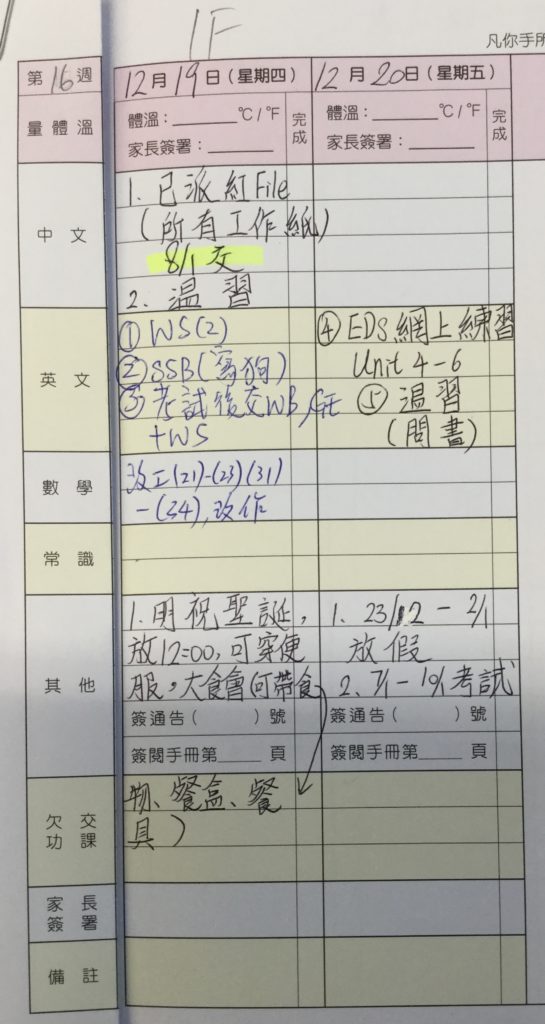 1F
凡你手所
第16週
12月19日(星期四)
12月20日(星期五)
量體溫
體溫：______℃/℉
家長簽署：______
完成
體溫：______℃/℉
家長簽署：______
完成
中文
1. 已派紅File
(所有工作紙)
8/1 交
2. 溫習
英文
① WS(2)
② SSB(寫狗)
③ 考試後交WB, GE
+WS
④ EDS網上練習
Unit 4-6
⑤ 溫習
(問書)
數學
改工(21)-(23)(31)
-(34), 改作
常識
其他
1. 明祝聖誕，
放12=00, 可穿便
服。大食會(可帶食
簽通告(　　)號
簽閱手冊第____頁
1. 23/12 - 2/1
放假
2. 7/1-10/1考試
簽通告(　　)號
簽閱手冊第____頁
欠交功課
物、餐盒、餐
具)
家長簽署
備註